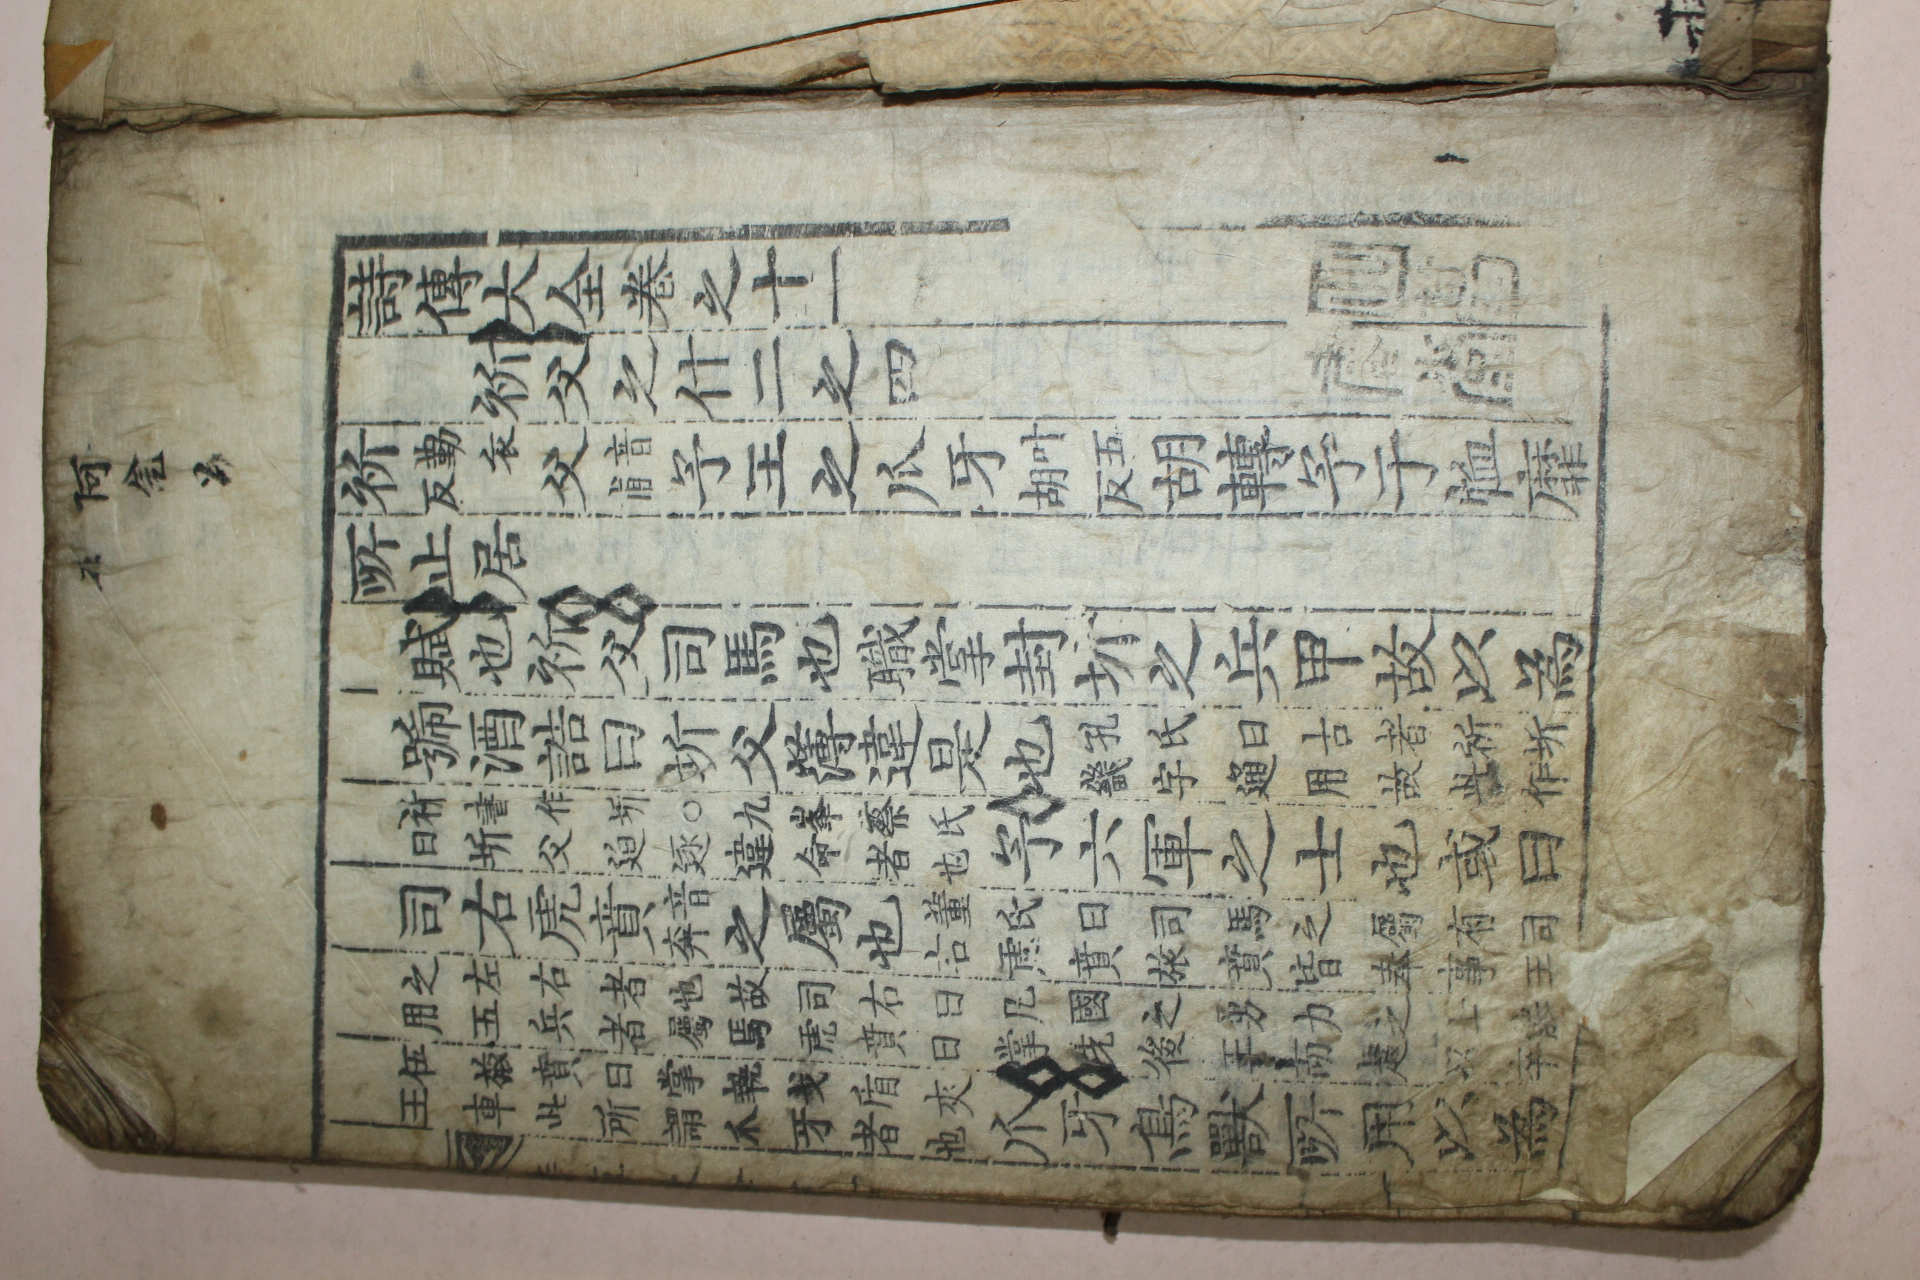 阿
詩傳大全卷之十一
祈父之什二之四
祈勤衣反父音甫予王之爪牙叶五胡反胡轉予于恤靡
所止居
賦也祈父司馬也職掌封圻之兵甲故以為
號酒誥曰圻父薄違是也孔氏曰古者祈圻畿字通用故此作
祈書作圻○九峯蔡氏曰圻父迫逐違命者也予六軍之士也或曰
司右虎賁音奔之屬也董氏曰司馬之屬有司右虎賁旅賁皆奉事王
之左右者也故司右曰凡國之勇力之士能用五兵者屬焉虎賁曰掌先後王而趨以卒
伍旅賁曰掌執戈盾夾王車此所謂爪牙者也爪牙鳥獸所用以為